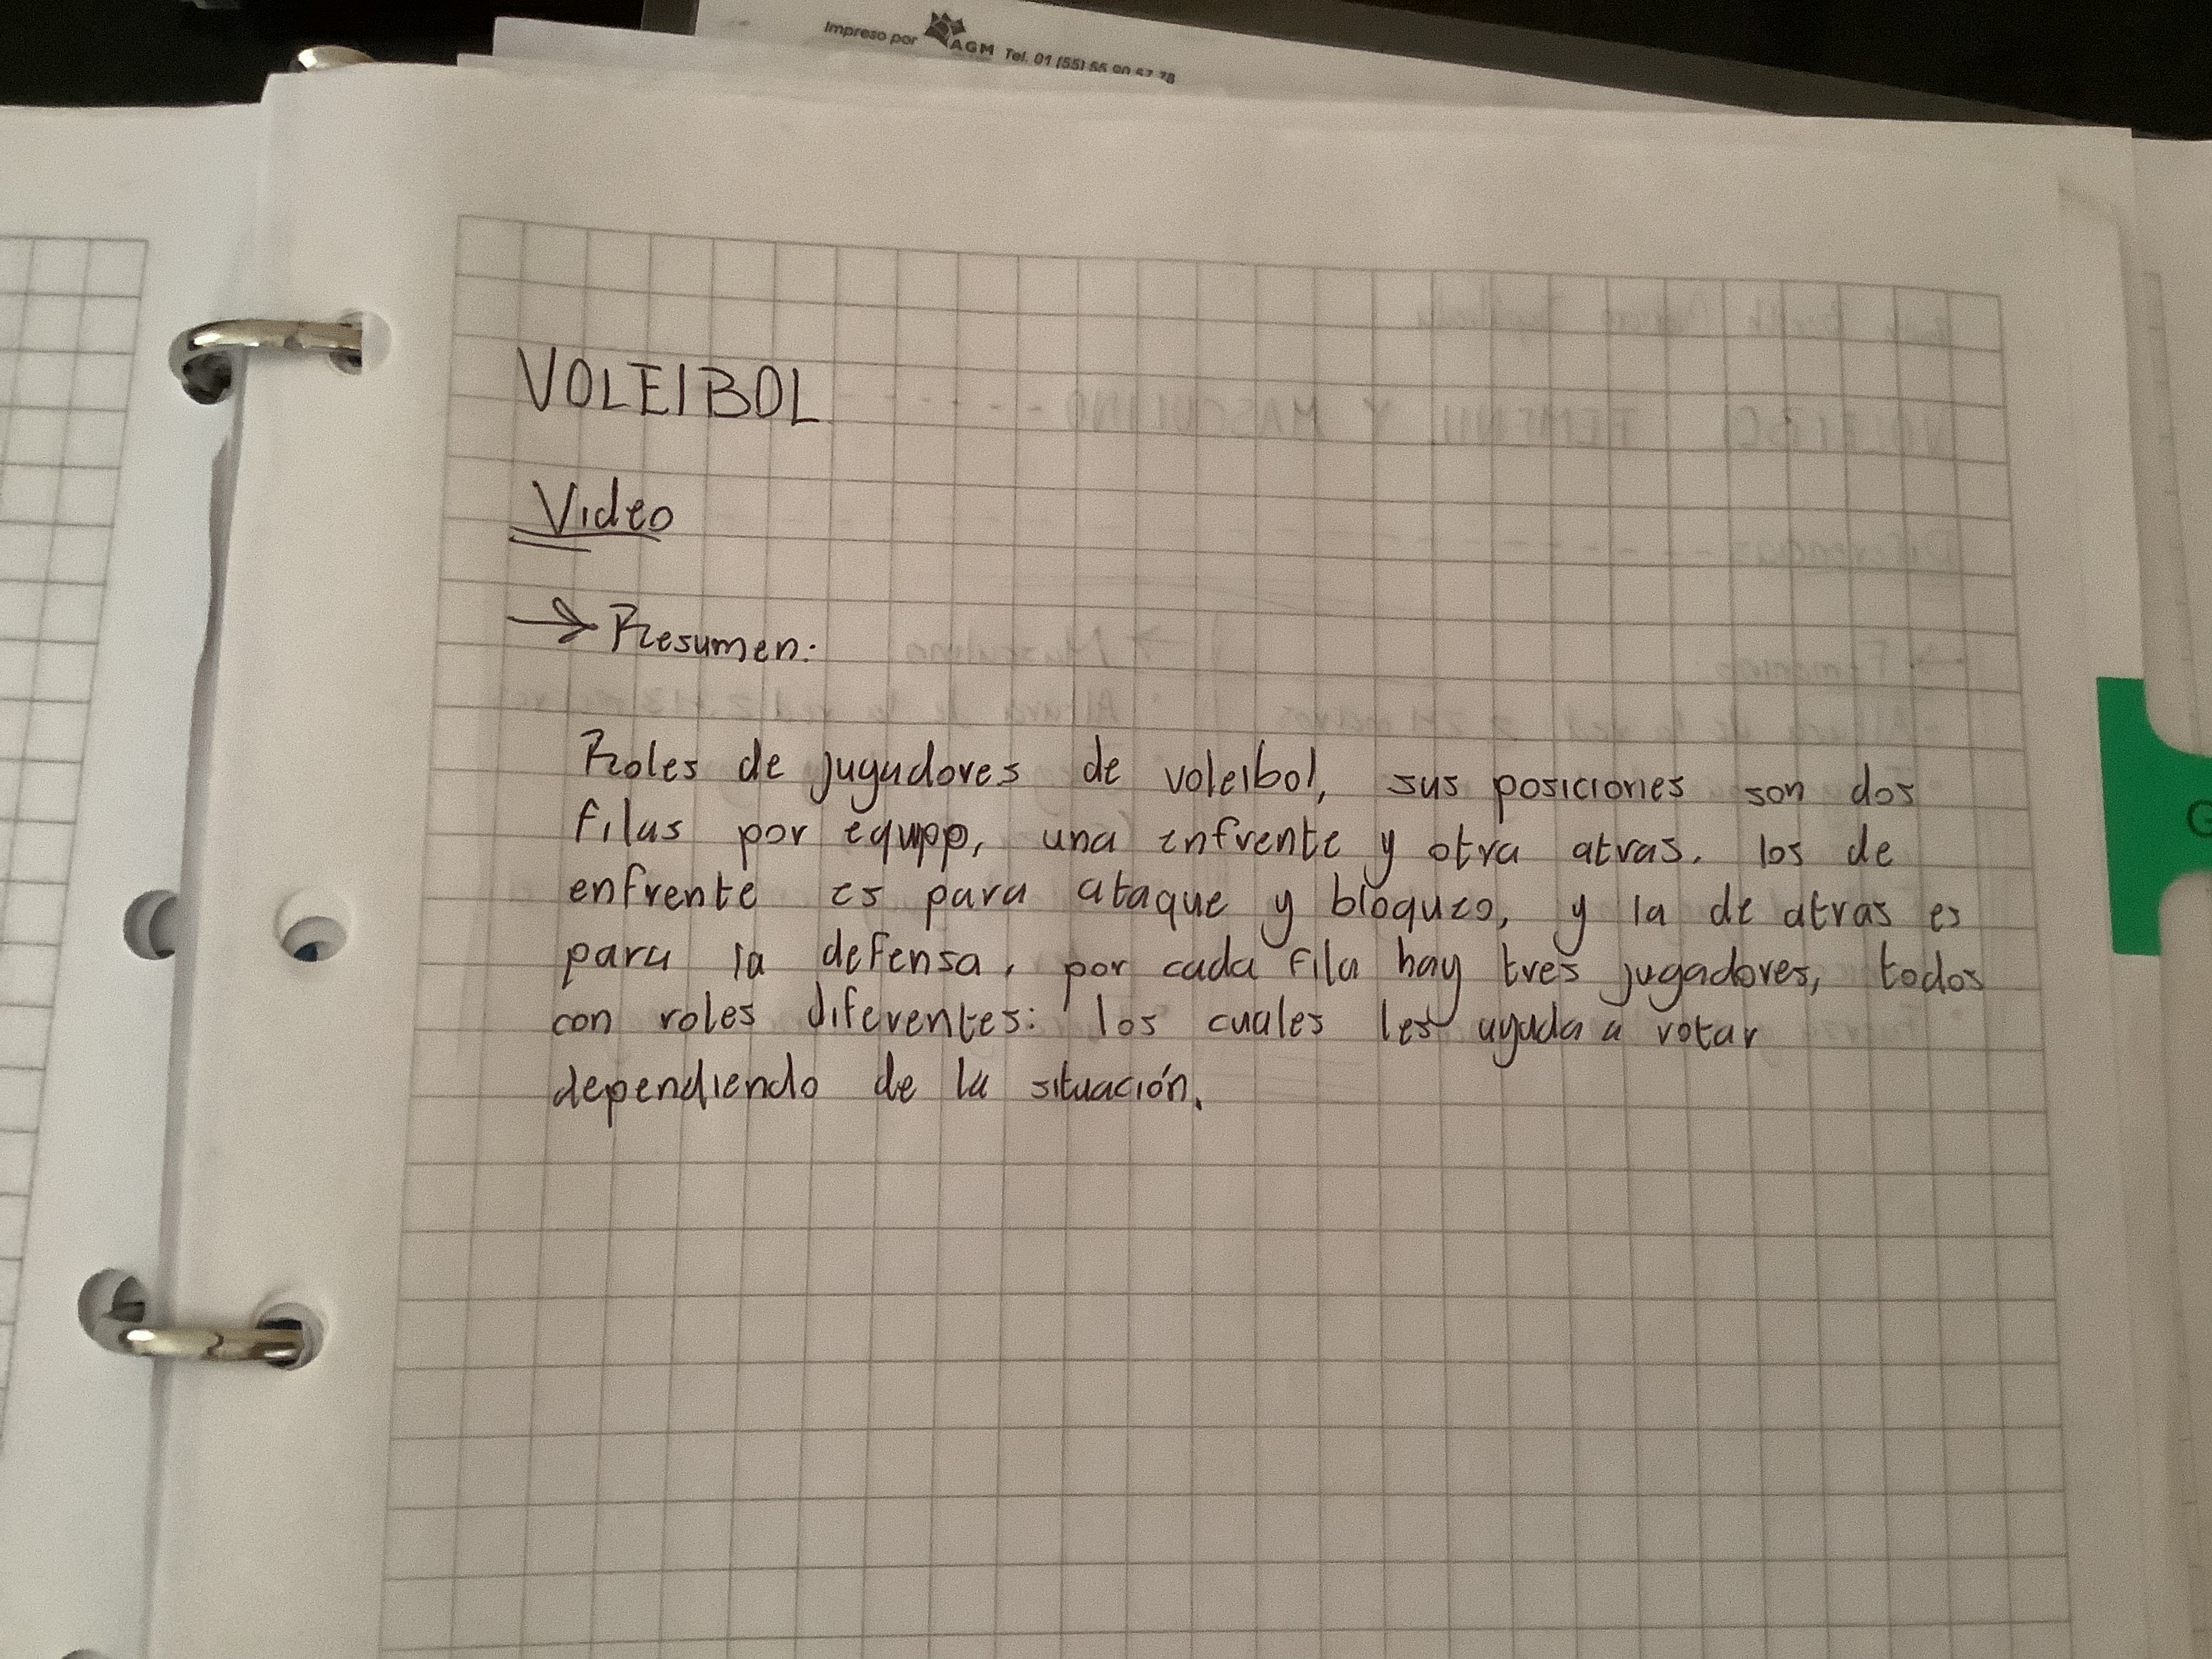 Impreso por AGM Tel. 01 (55) 55 90 57 78
VOLEIBOL
Video
→ Resumen:
Roles de jugadores de voleibol, sus posiciones son dos
filas por equipo, una enfrente y otra atras. los de
enfrente es para ataque y bloqueo, y la de atras es
para la defensa, por cada fila hay tres jugadores, todos
con roles diferentes: los cuales les ayuda a rotar
dependiendo de la situación.
G